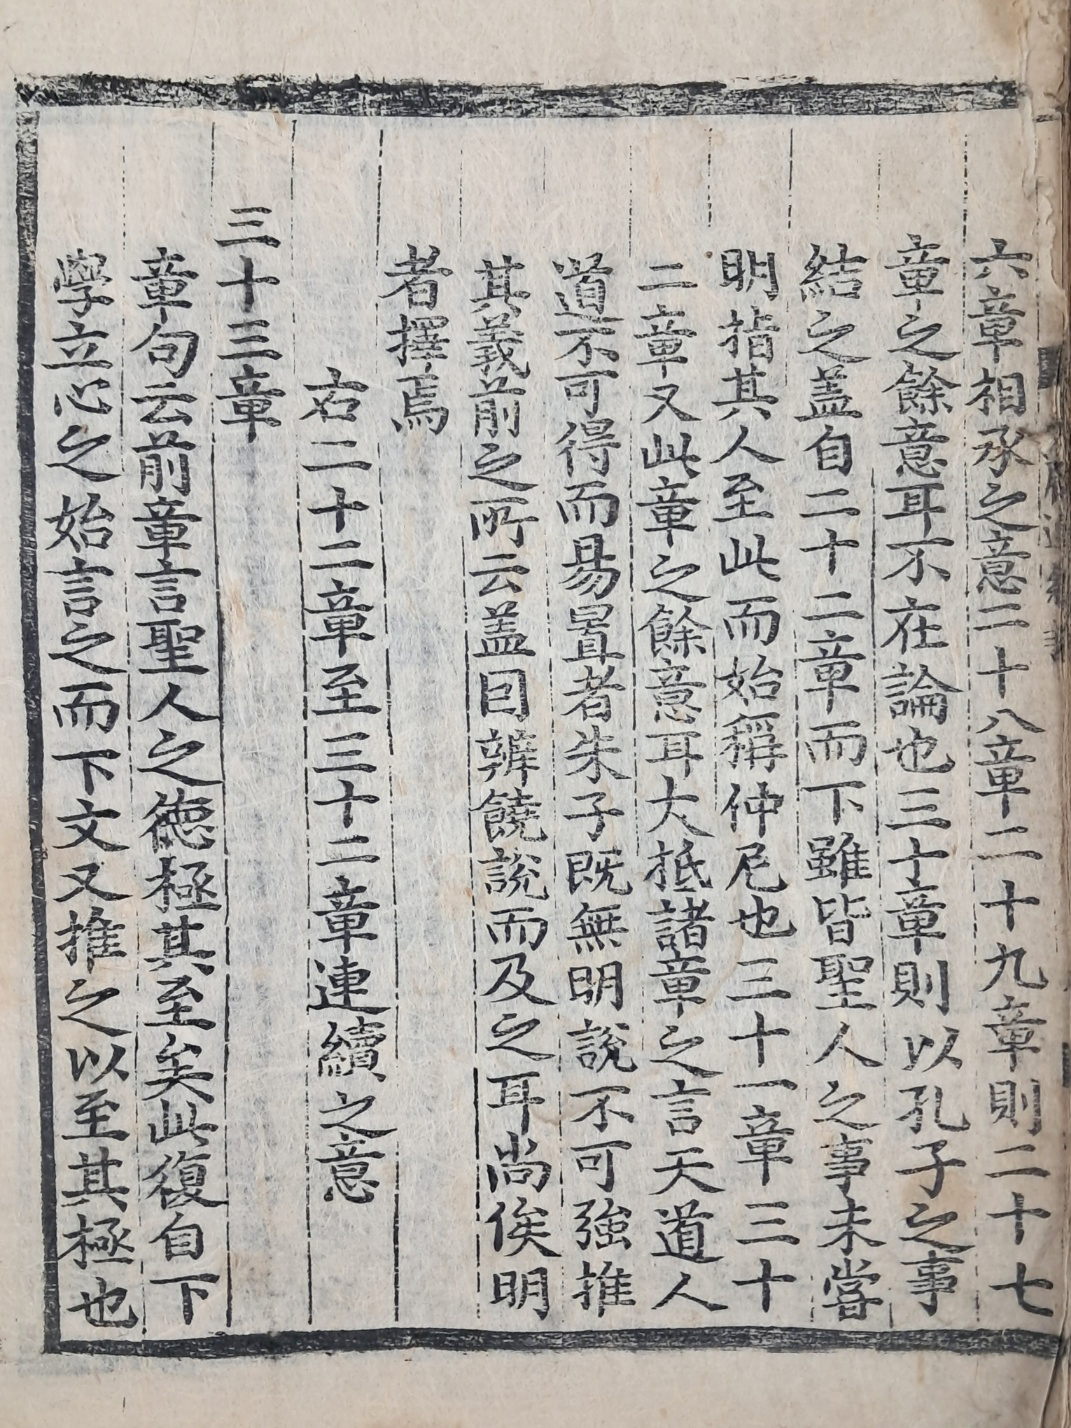 六章相承之意二十八章二十九章則二十七
章之餘意耳不在論也三十章則以孔子之事
結之盖自二十二章而下雖皆聖人之事未甞
明指其人至此而始稱仲尼也三十一章三十
二章又此章之餘意耳大抵諸章之言天道人
道不可得而易置者朱子既無明說不可強推
其義前之所云盖因辨饒說而及之耳尚俟明
者擇焉
右二十二章至三十二章連續之意
三十三章
章句云前章言聖人之德極其至矣此復自下
學立心之始言之而下文又推之以至其極也